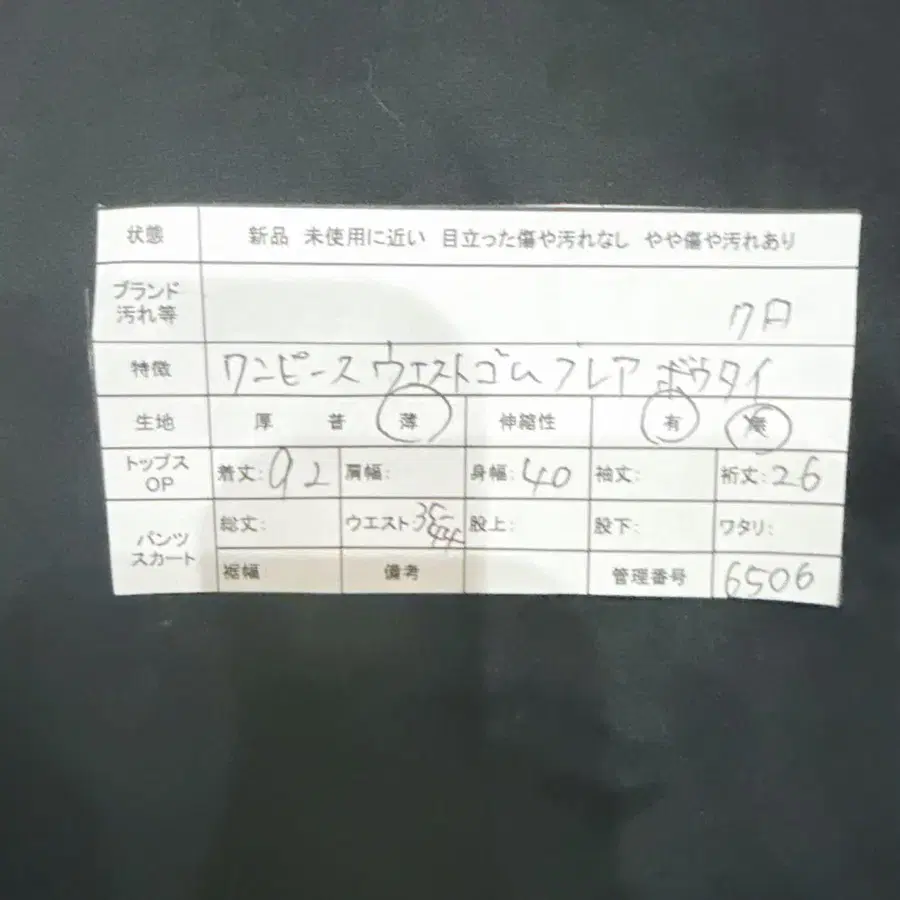 状態 新品 未使用に近い 目立った傷や汚れなし やや傷や汚れあり
ブランド
汚れ等
クロ
特徴 ワンピース ウエストゴム フレア ボウタイ
生地 厚 普 薄 伸縮性 有 無
トップス
OP
着丈: 92 肩幅: 身幅: 40 袖丈: 裄丈: 26
パンツ
スカート
総丈: ウエスト 35-44 股上: 股下: ワタリ:
裾幅 備考 管理番号 6506